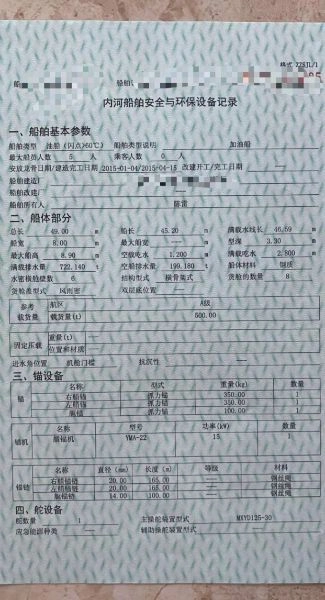 格式 ZZSJL/1
船
船舶
内河船舶安全与环保设备记录
一、船舶基本参数
船舶类型 油船（闪点>60℃） 船舶类型说明 加油船
最大船员人数 5 人 乘客人数 0 人
安放龙骨日期/建造完工日期 2015-01-04/2015-04-15 改建开工/完工日期
船舶建造厂
船舶改建厂
船舶所有人 陈雷
二、船体部分
总长 49.00 m 船长 45.20 m 满载水线长 46.59 m
船宽 8.00 m 最大船宽 —— m 型深 3.30 m
最大船高 8.90 m 空载吃水 1.200 m 满载吃水 2.800 m
满载排水量 722.140 t 空船排水量 199.180 t 船体材料 钢质
水密横舱壁数 6 结构型式 横骨架式 货舱的数量 8
货舱盖型式 风雨密 双层底位置 ——
参考载货量 航区 A级
载货量(t) 500.00
固定压载 重量(t)
位置和材质
进水角位置 机舱门槛 抗沉性 ——
三、锚设备
锚 名称 型式 重量(kg) 数量
右艏锚 抓力锚 350.00 1
左艏锚 抓力锚 350.00 1
艉锚 抓力锚 100.00 1
锚机 名称 型号 功率(kW) 数量
艏锚机 YMA-22 15 1
锚链 名称 直径(mm) 长度(m) 等级 材料
右艏锚链 20.00 165.00 —— 钢丝绳
左艏锚链 20.00 165.00 —— 钢丝绳
艉锚链 14.00 100.00 —— 钢丝绳
四、舵设备
舵数量 1 主操舵装置型式 MXYD125-30
应急能源种类 —— 辅助操舵装置型式 ——